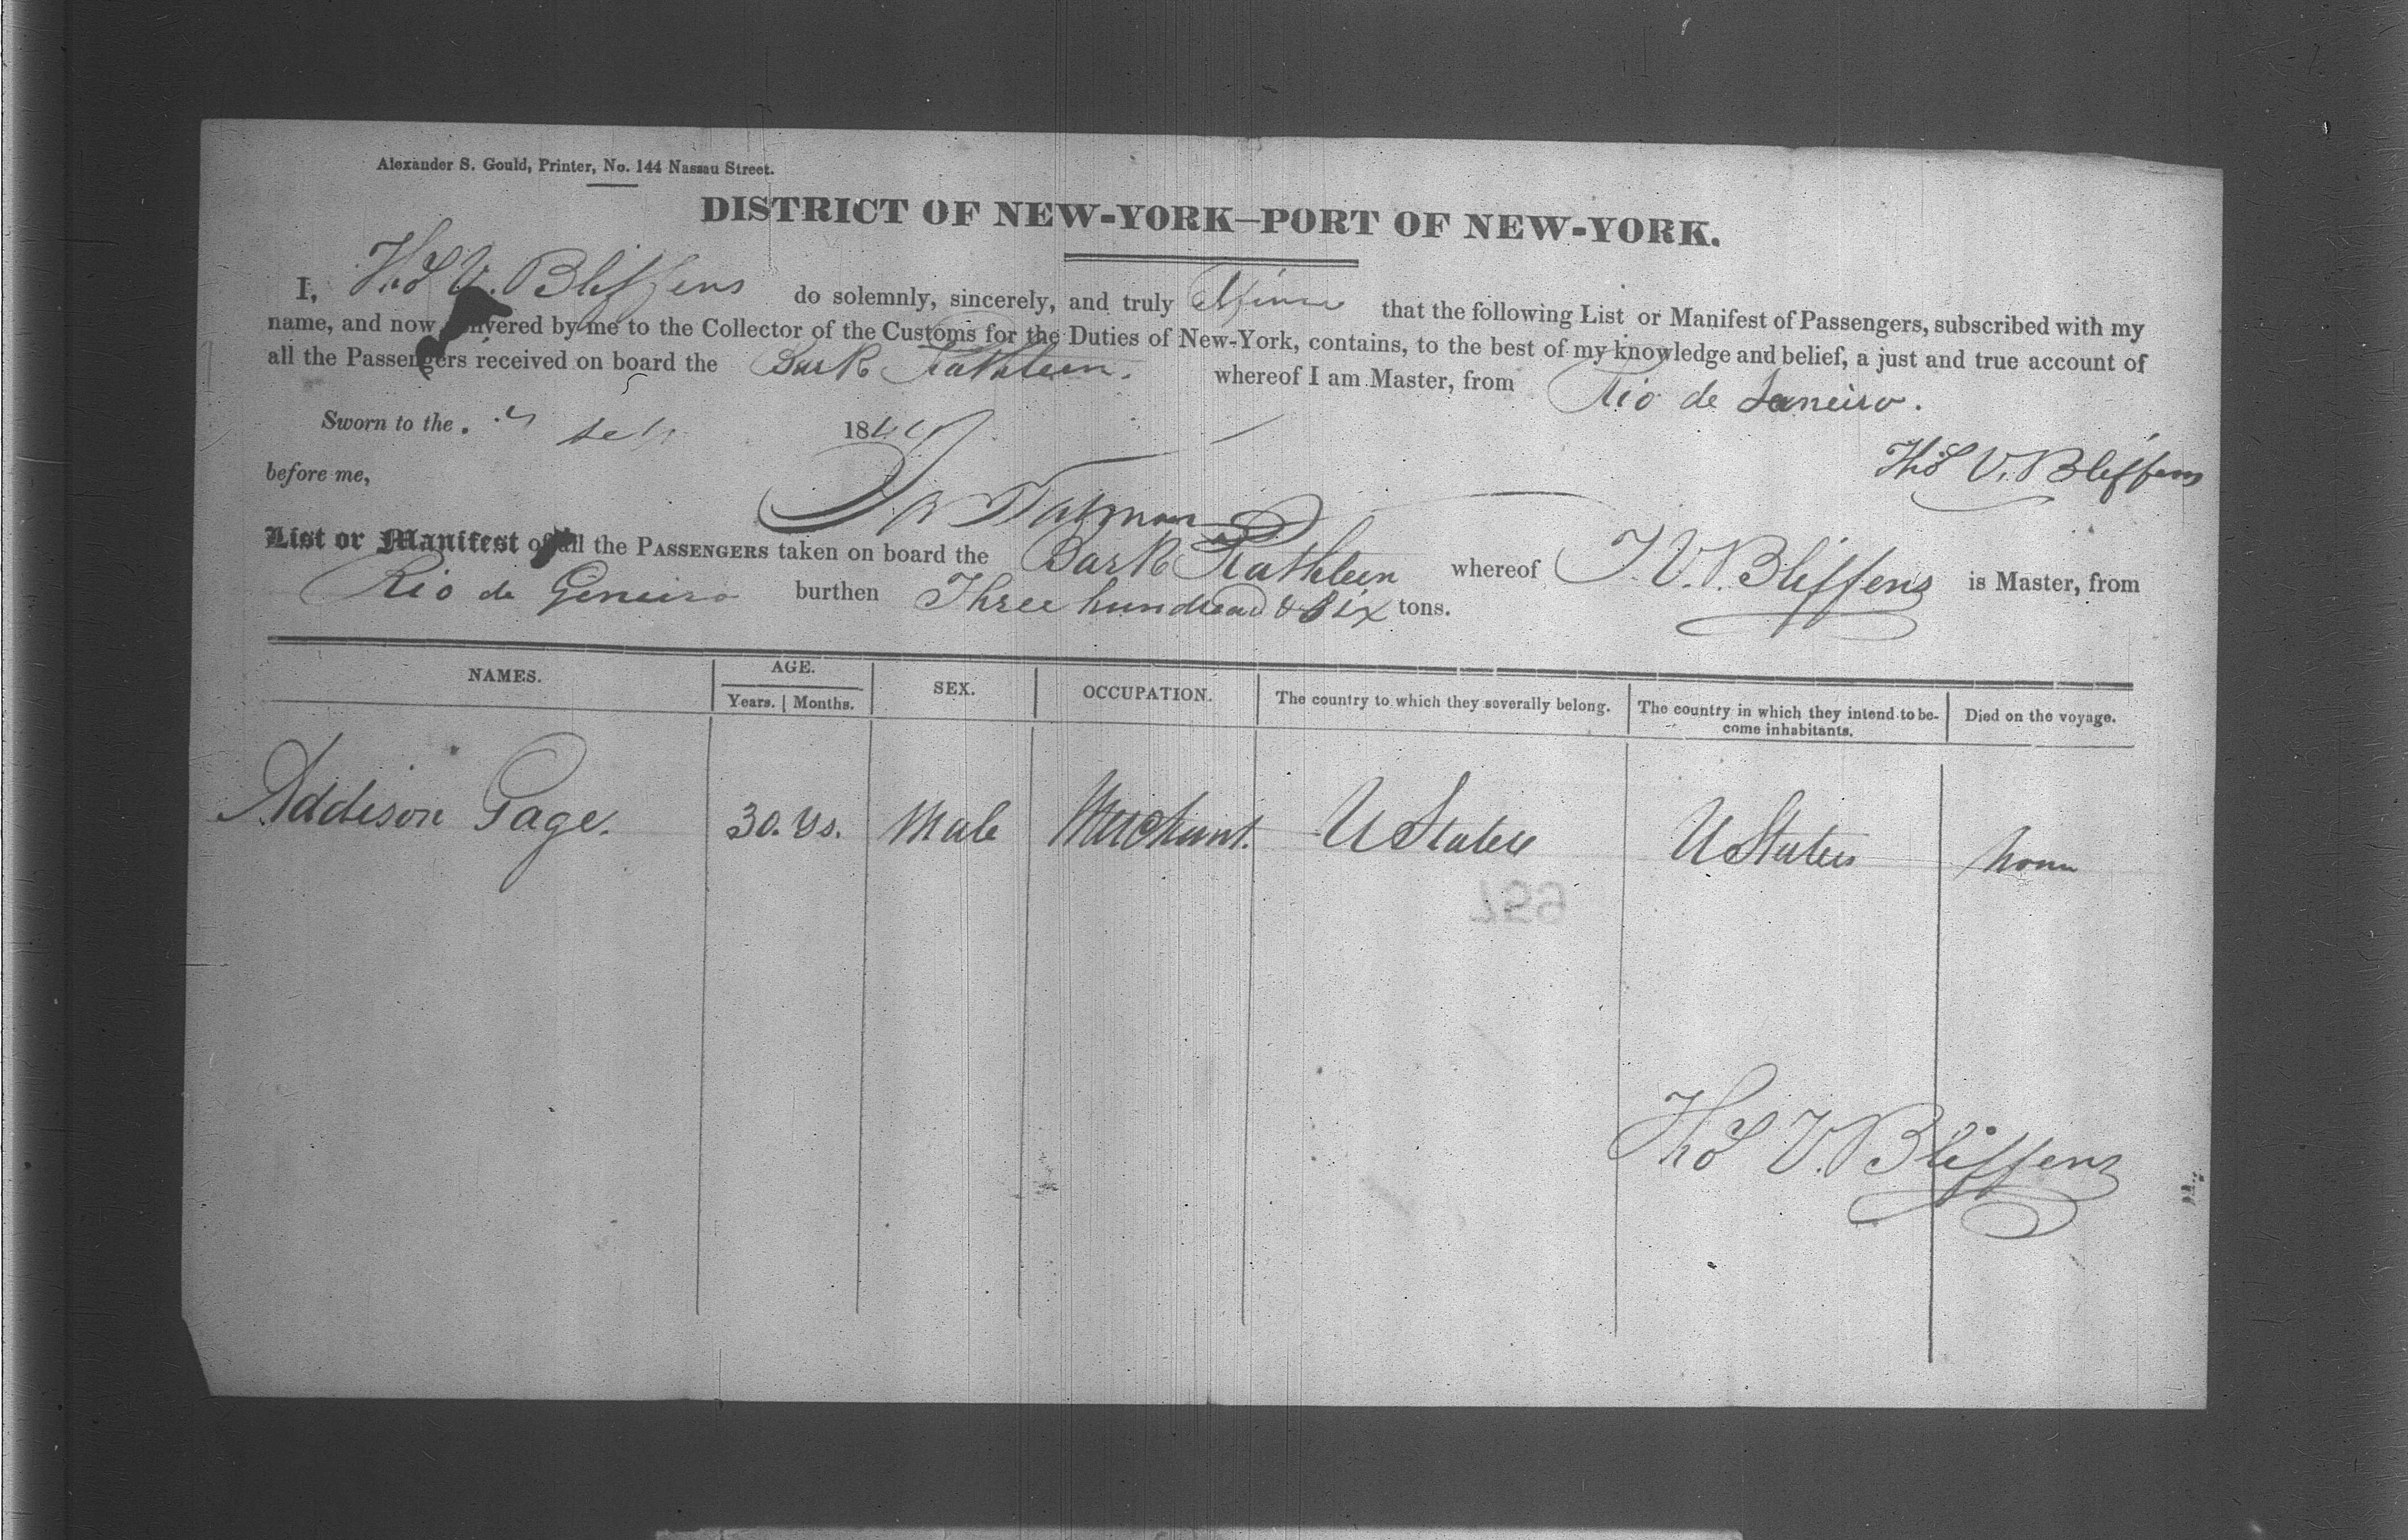 Alexander S. Gould, Printer, No. 144 Nassau Street.
DISTRICT OF NEW-YORK—PORT OF NEW-YORK.
I, Thos V. Bliffens do solemnly, sincerely, and truly that the following List or Manifest of Passengers, subscribed with my
name, and now delivered by me to the Collector of the Customs for the Duties of New-York, contains, to the best of my knowledge and belief, a just and true account of
all the Passengers received on board the Bark Kathleen. whereof I am Master, from Rio de Janeiro.
Sworn to the 184
Thos V. Bliffens
before me,
List or Manifest of all the PASSENGERS taken on board the Bark Kathleen whereof T. V. Bliffens is Master, from
Rio de Geneiro burthen Three hundread & Six tons.
NAMES. AGE. SEX. OCCUPATION. The country to which they severally belong. The country in which they intend to be-
Years. | Months. come inhabitants. Died on the voyage.
Addison Gage. 30. Ys. Male Merchant. U States U States none
759
Thos V. Bliffens